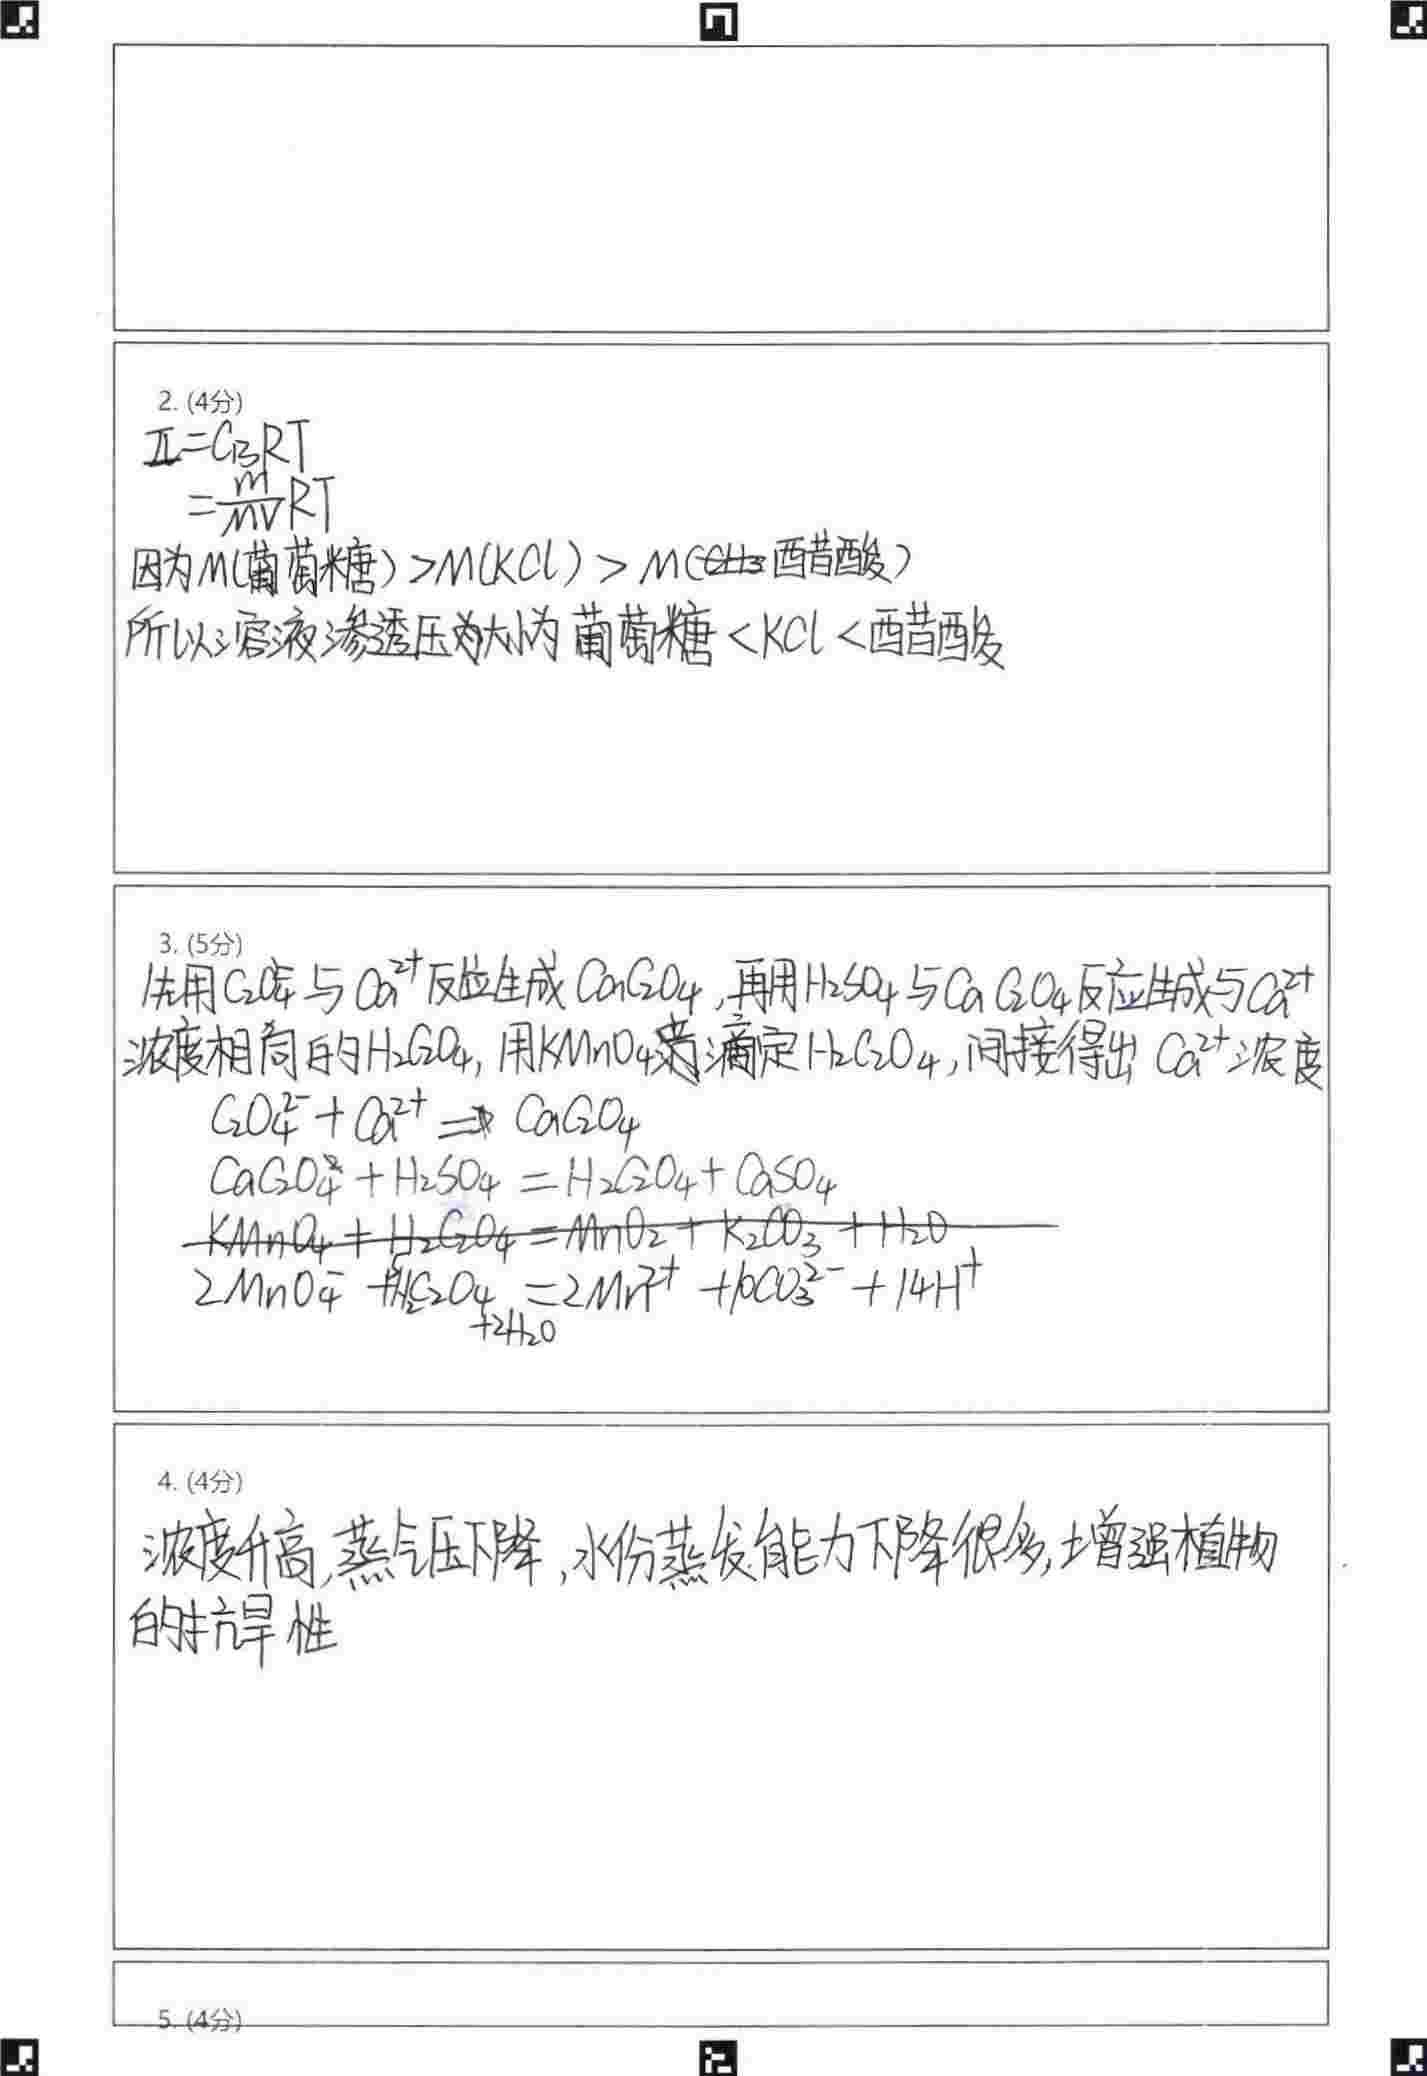 2. (4分)
Π=CBRT
=m/MV RT
因为M(葡萄糖)>M(KCl)>M(醋酸)
所以溶液渗透压为大小为 葡萄糖<KCl<醋酸
3. (5分)
先用C₂O₄²⁻与Ca²⁺反应生成CaC₂O₄,再用H₂SO₄与CaC₂O₄反应生成与Ca²⁺
浓度相同的H₂C₂O₄,用KMnO₄滴定H₂C₂O₄,间接得出Ca²⁺浓度
C₂O₄²⁻+Ca²⁺=CaC₂O₄
CaC₂O₄+H₂SO₄=H₂C₂O₄+CaSO₄
KMnO₄+H₂C₂O₄=MnO₂+K₂CO₃+H₂O
2MnO₄⁻+5H₂C₂O₄+2H₂O=2Mn²⁺+10CO₃²⁻+14H⁺
4. (4分)
浓度升高,蒸气压下降,水份蒸发能力下降很多,增强植物
的抗旱性
5. (4分)